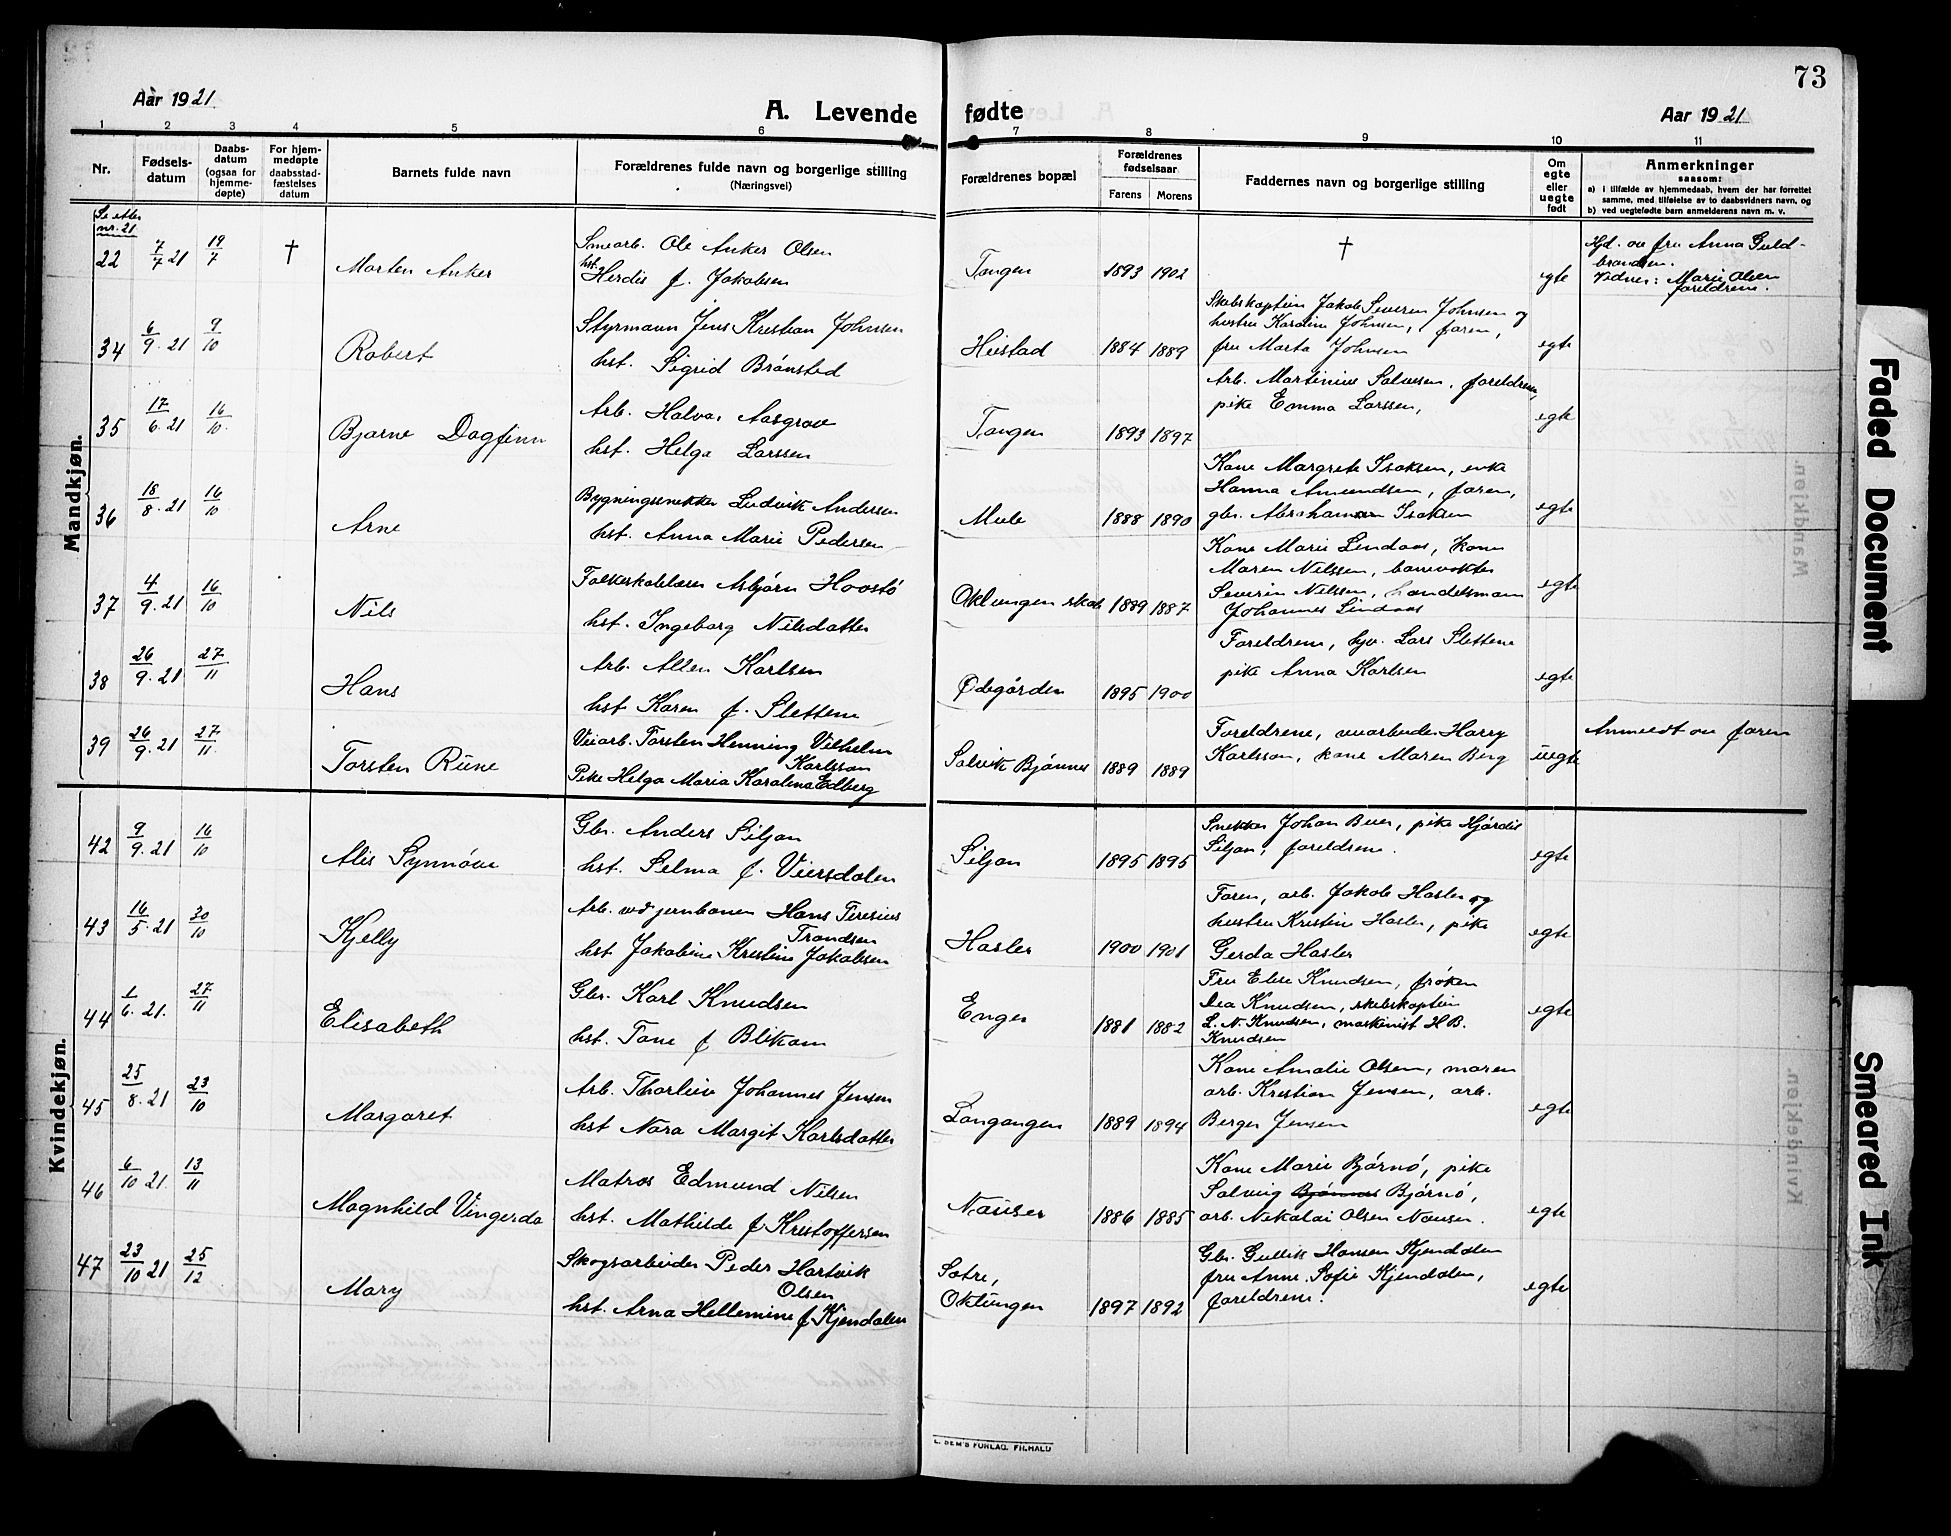 73
Aar 1921.
A. Levende fødte
Aar 1921
1 2 3 4 5 6 7 8 9 10 11
Nr.
Fødsels-
datum
Daabs-
datum
(ogsaa for
hjemme-
døpte)
For hjem-
medøpte
daabsstad-
fæstelses
datum
Barnets fulde navn
Forældrenes fulde navn og borgerlige stilling
(Næringsvei)
Forældrenes bopæl
Forældrenes
fødselsaar
Farens Morens
Faddernes navn og borgerlige stilling
Om
egte
eller
uegte
født
Anmerkninger
saasom:
a) i tilfælde av hjemmedaab, hvem der har forrettet
samme, med tilføielse av to daabsvidners navn, og
b) ved uegtefødte barn anmelderens navn m. v.
Mandkjøn.
Se etter
nr. 21
22 7/7 21 19/7 † Morten Anker
Smearb. Ole Anker Olsen
hst. Herdis f. Jakobsen
Tangen 1893 1902 † egte
Hjd. av fru Anna Guld-
brandsen.
Vidner: Marie Olsen
foreldrene.
34 6/9 21 9/10 Robert
Styrmann Jens Kristian Johnsen
hst. Sigrid Brønsted
Heistad 1884 1889
Skibskaptein Jakob Severin Johnsen og
hustru Karoline Johnsen, faren,
fru Marta Johnsen
egte
35 17/6 21 16/10 Bjarne Dagfinn
Arb. Halvor Aasgrav
hst. Helga Larssen
Tangen 1893 1897
Arb. Martinius Salvesen, foreldrene,
pike Emma Larssen,
egte
36 18/8 21 16/10 Arne
Bygningssnekker Ludvik Andersen
hst. Anna Marie Pedersen
Mule 1888 1890
Kone Margrete Isaksen, enke
Hanna Amundsen, faren,
gbr. Abraham Isaksen
egte
37 4/9 21 16/10 Nils
Folkeskolelærer Asbjørn Hovstø
hst. Ingeborg Nilsdatter
Oklungen skole 1889 1887
Kone Marie Lindaas, kone
Maren Nilssen, banevokter
Severin Nilssen, handelsmann
Johannes Lindaas
egte
38 26/9 21 27/11 Hans
Arb. Alten Karlsen
hst Karen f. Slettene
Ødegården 1895 1900
Foreldrene, Lars Slettene
pike Anna Karlsen
egte
39 26/9 21 27/11 Torsten Rune
Veiarb. Torsten Henning Vilhelm
Karlsson
Pike Helga Maria Karolina Edberg
Salvik Bjønnes 1889 1889
Foreldrene, Harry
Karlsson, kone Maren Berg
uegte
Anmeldt av faren
Kvindekjøn.
42 9/9 21 16/10 Alis Synnøve
Gbr. Anders Siljan
hst. Selma f. Viersdalen
Siljan 1895 1895
Snekker Johan Buer, pike Hjørdis
Siljan, foreldrene.
egte
43 16/5 21 30/10 Kjelly
Arb. ved jernbanen Hans Teresius
Trondsen
hst Jakobine Kristine Jakobsen
Hasler 1900 1901
Faren, arb. Jakob Hasler og
hustru Kristine Hasler, pike
Gerda Hasler
egte
44 1/6 21. 27/11 Elisabeth
Gbr. Karl Knudsen
hst. Tone f Blekam
Enger 1881 1882
Fru Elise Knudsen, frøken
Dea Knudsen, skibskaptein
L. N. Knudsen, maskinist H B.
Knudsen
egte
45 25/8 21 23/10 Margaret
Arb. Thorleiv Johannes Jensen
hst Nora Margit Karlsdatter
Langangen 1889 1894
Kone Amalie Olsen, moren
arb. Kristian Jensen, arb.
Berger Jensen
egte
46 6/10 21. 13/11 Magnhild Vingerda
Matros Edmund Nilsen
hst. Mathilde f Kristoffersen
Nauser 1886 1885
Kone Marie Bjørnø, pike
Solveig Bjønnes Bjørnø,
arb. Nikolai Olsen Nausen.
egte
47 23/10 21 25/12 Mary
Skogsarbeider Peder Hartvik
Olsen
hst. Arna Hellemine f Kjendalen
Sætre,
Oklungen 1897 1892
Gbr. Gullik Hansen Kjendalen
fru Anne. Sofie Kjendalen,
foreldrene.
egte
E. SEM'S FORLAG, FR.HALD
Faded Document
Smeared Ink